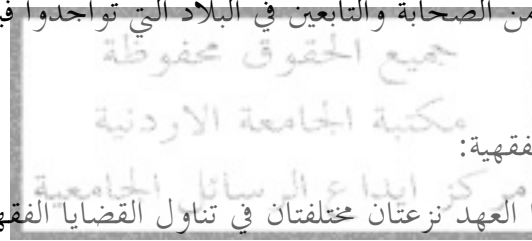 من الصحابة والتابعين في البلاد التي تواجدوا
جميع الحقوق محفوظة
مكتبة الجامعة الاردنية
مركز ايداع الرسائل الجامعية
العهد نزعتان مختلفتان في تناول القضايا